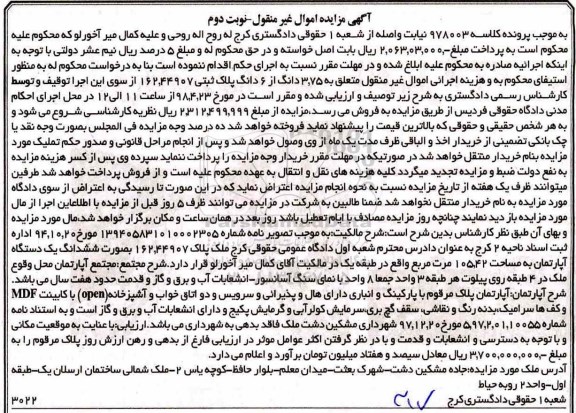 آگهی مزایده اموال غیر منقول-نوبت دوم
به موجب پرونده کلاسه ۹۷۸۰۰۳ نیابت واصله از شعبه ۱ حقوقی دادگستری کرج له روح اله روحی و علیه کمال میر آخورلو که محکوم علیه
محکوم است به پرداخت مبلغ ۲,۰۶۳,۰۳,۰۰۰,- ریال بابت اصل خواسته و در حق محکوم له و مبلغ ۵ درصد ریال نیم عشر دولتی با توجه به
اینکه اجرائیه صادره به محکوم علیه ابلاغ شده و در مهلت مقرر نسبت به اجرای حکم اقدام ننموده است بنا به درخواست محکوم له به منظور
استیفای محکوم به و هزینه اجرائی اموال غیر منقول متعلق به ۳,۷۵ دانگ از ۶ دانگ پلاک ثبتی ۱۶۲,۴۴۹۰۷ از سوی این اجرا توقیف و توسط
کارشناس رسمی دادگستری به شرح زیر توصیف و ارزیابی شده و مقرر است در مورخ ۹۸,۴,۲۳ از ساعت ۱۱ الی ۱۲ در محل اجرای احکام
مدنی دادگاه حقوقی فردیس از طریق مزایده به فروش می رسد.مزایده از مبلغ ۲۳۱۲,۴۹۹,۹۹۹ ریال نظریه کارشناسی شروع می شود و
به هر شخص حقیقی و حقوقی که بالاترین قیمت را پیشنهاد نماید فروخته خواهد شد ده درصد وجه مزایده فی المجلس بصورت وجه نقد یا
چک بانکی تضمینی از خریدار اخذ و الباقی ظرف مدت یک ماه از وی وصول خواهد شد و پس از انجام مراحل قانونی و صدور حکم تملیک مورد
مزایده بنام خریدار منتقل خواهد شد در صورتیکه در مهلت مقرر خریدار وجه مزایده را پرداخت ننماید سپرده وی پس از کسر هزینه مزایده
به نفع دولت ضبط و مزایده تجدید میگردد کلیه هزینه های نقل و انتقال به عهده محکوم علیه است و از فروش پرداخت خواهد شد طرفین
میتوانند ظرف یک هفته از تاریخ مزایده نسبت به نحوه انجام مزایده اعتراض نماید که در این صورت تا رسیدگی به اعتراض از سوی دادگاه
مورد مزایده به نام خریدار منتقل نخواهد شد ضمنا طالبین به شرکت در مزایده می توانند ظرف ۵ روز قبل از مزایده با اطلاعاین اجرا از مال
مورد مزایده باز دید نمایند چنانچه روز مزایده مصادف با ایام تعطیل باشد روز بعد در همان ساعت و مکان برگزار خواهد شد،مال مورد مزایده
و بهای آن طبق نظر کارشناس بدین شرح است:شرح مالکیت:به موجب تصویر نامه شماره ۱۳۹۴۰۵۸۳۱۰۱۰۰۰۲۳۵۵ مورخ ۹۴,۱۰,۲۰ اداره
ثبت اسناد ناحیه ۲ کرج به عنوان دادرس محترم شعبه اول دادگاه عمومی حقوقی کرج ملک پلاک ۱۶۲,۴۴۹۰۷ بصورت ششدانگ یک دستگاه
آپارتمان به مساحت ۱۰۵,۴۲ مترت مربع واقع در طبقه یک در مالکیت آقای کمال میر آخورلو قرار دارد.شرح مجتمع:مجتمع آپارتمان محل وقوع
ملک در ۴ طبقه روی پیلوت هر طبقه ۳ واحد جمعا ۸ واحد با نمای سنگ آسانسور-انشعابات آب و برق و گاز و قدمت حدود هفت سال می باشد.
شرح آپارتمان:آپارتمان پلاک مرقوم با پارکینگ و انباری دارای هال و پذیرائی و سرویس و دو اتاق خواب و آشپزخانه(open) با کابینت MDF
و کف ها سرامیک،بدنه رنگ و نقاشی، سقف گچ بری،سرمایش کولرآبی و گرمایش پکیج و دارای انشعابات آب و برق و گاز است و به استناد نامه
شماره ۵۹۷,۲۰۱,۱۰۰۵۵ مورخ ۹۷,۱۲,۲۰ شهرداری مشکین دشت ملک فاقد بدهی به شهرداری می باشد.ارزیابی:با عنایت به موقعیت مکانی
و با توجه به دسترسی و انشعابات و قدمت و با در نظر گرفتن اکثر عوامل موثر در ارزیابی فارغ از بدهی و رهن ارزش روز پلاک مرقوم را به
مبلغ ۳,۷۰۰,۰۰۰,۰۰۰,- ریال معادل سیصد و هفتاد میلیون تومان برآورد و اعلام می دارد.
آدرس ملک مورد مزایده:جاده مشکین دشت-شهرک بعثت-میدان معلم-بلوار حافظ-کوچه یاس ۲-ملک شمالی ساختمان ارسلان یک-طبقه
اول-واحد۲ رو به حیاط
شعبه ۱ حقوقی دادگستری کرج
۳۰۲۲